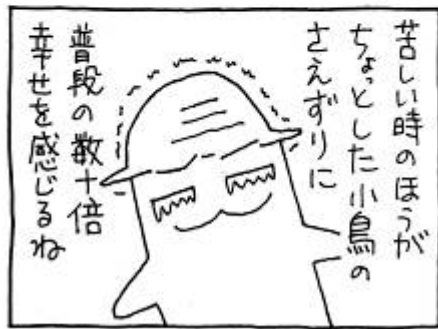 苦しい時のほうが
ちょっとした小鳥の
さえずりに
普段の数十倍
幸せを感じるね